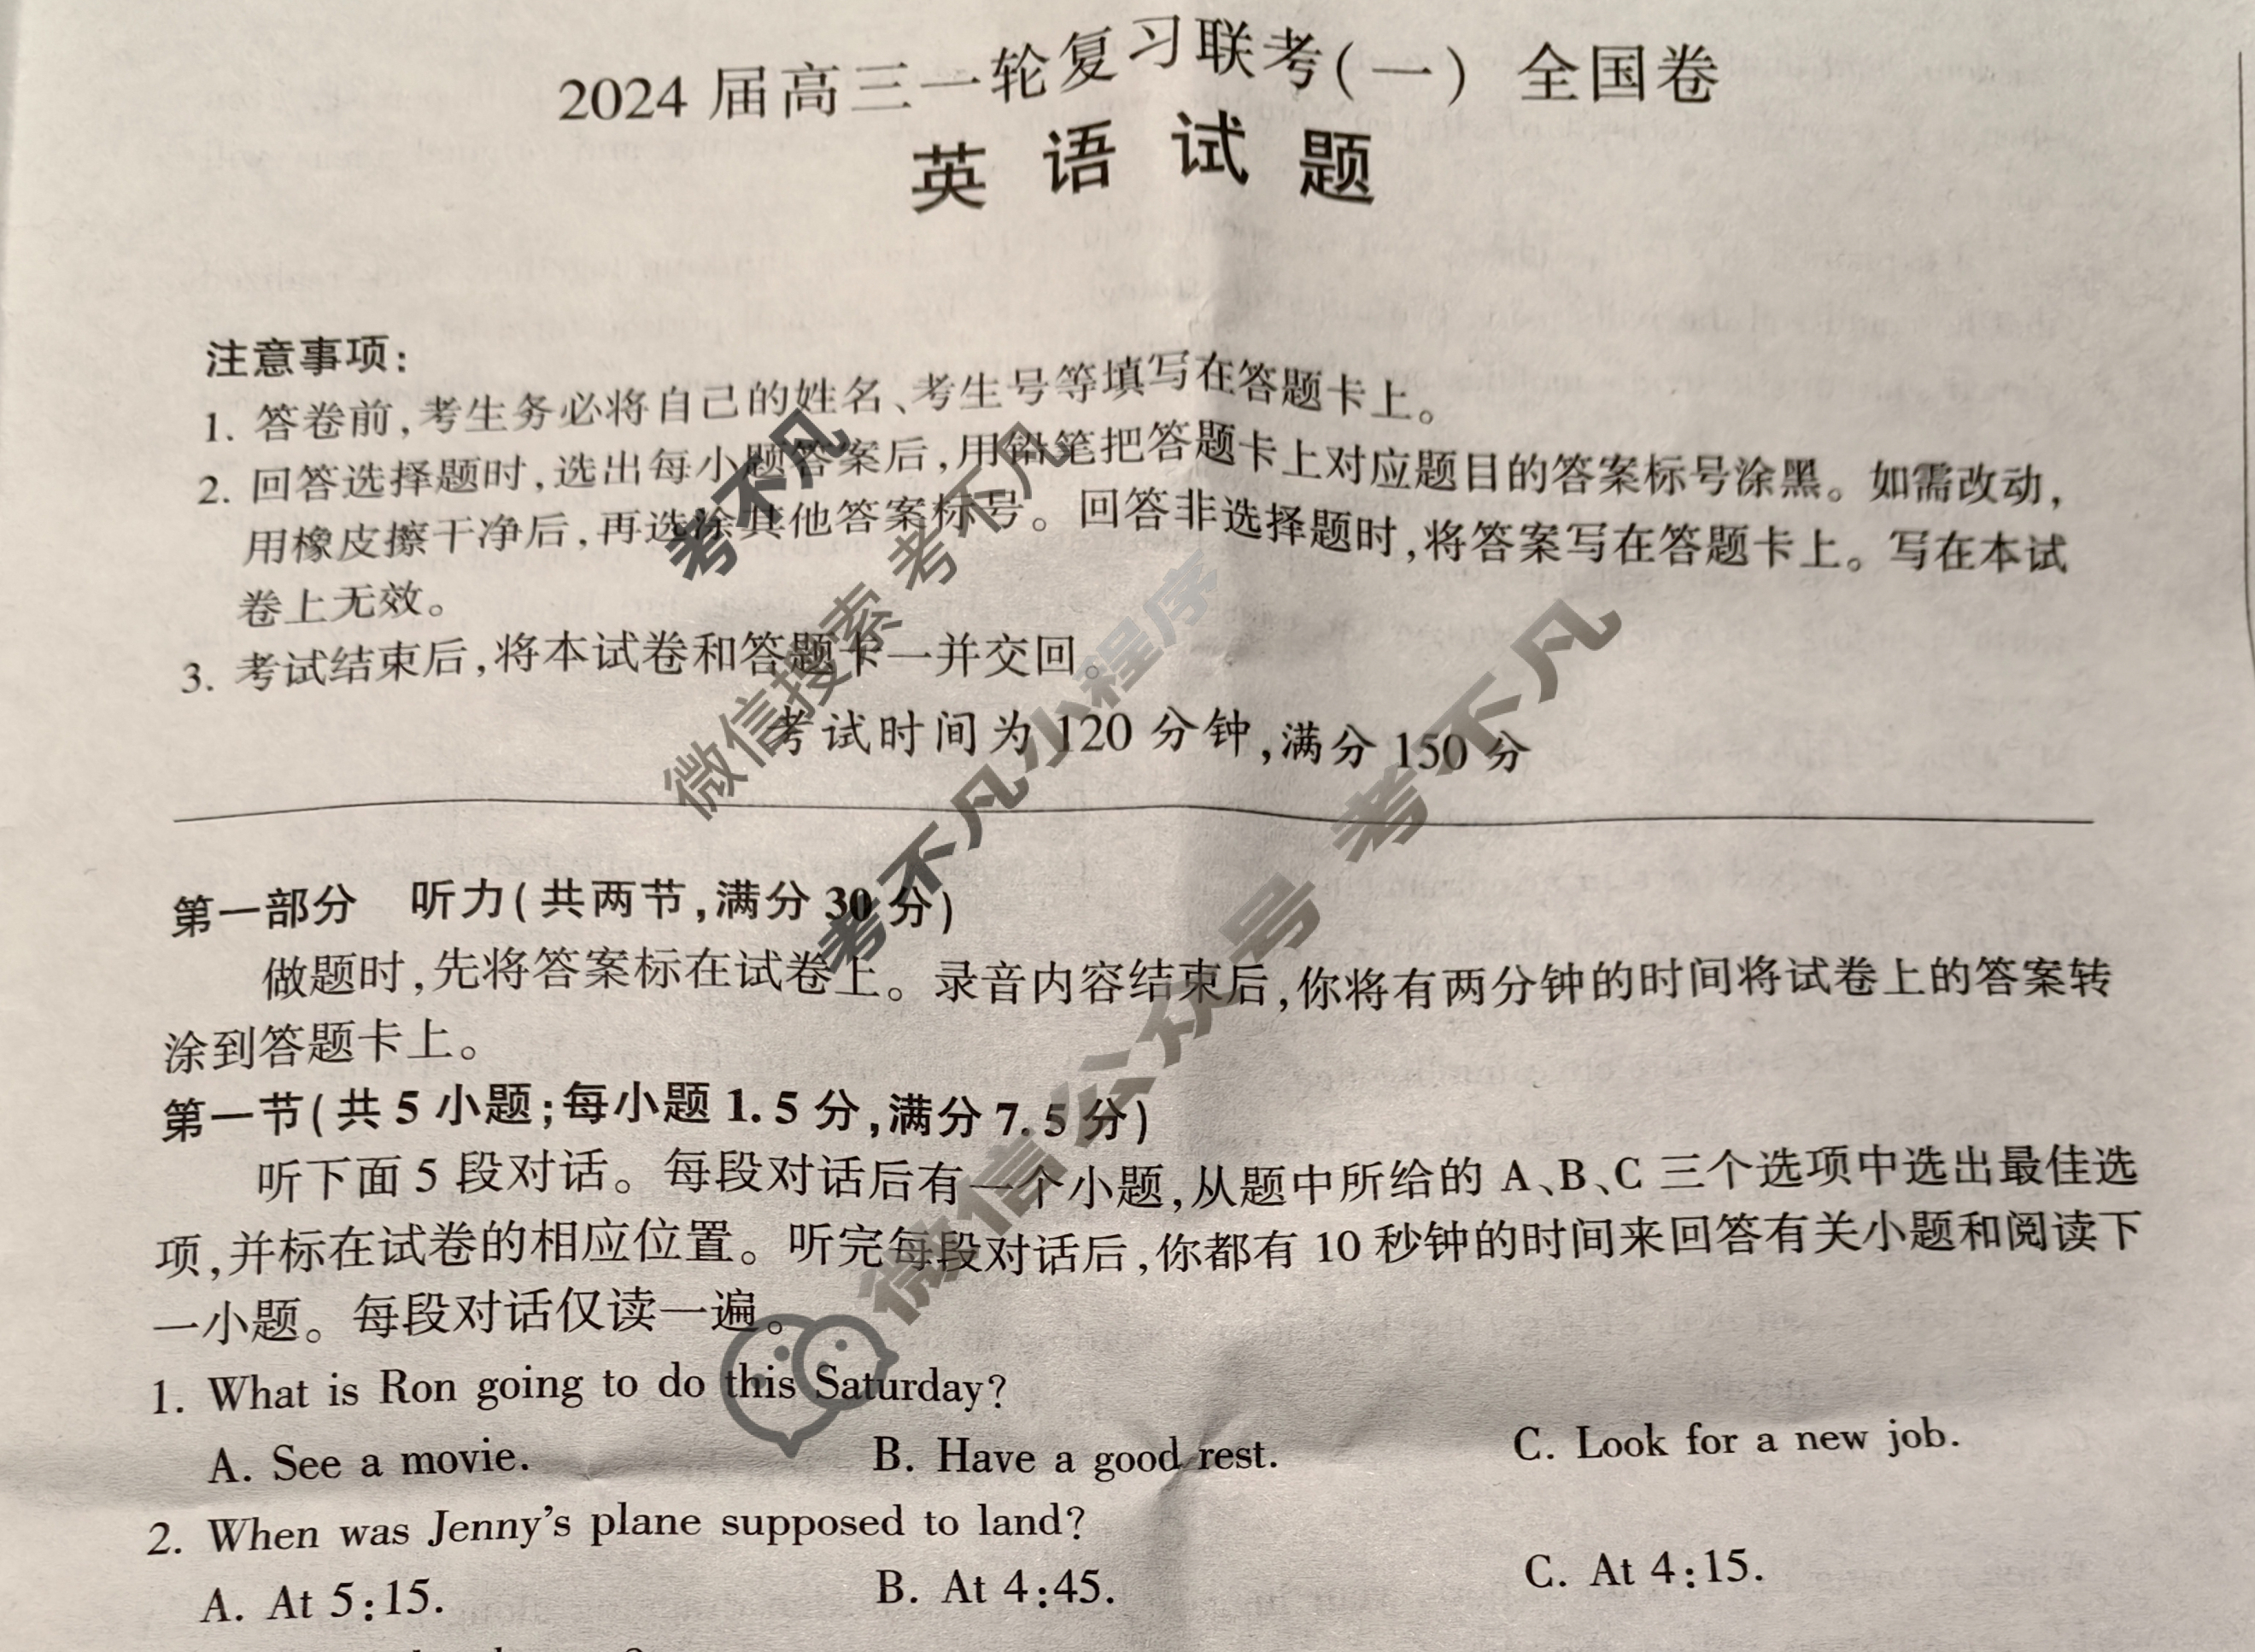 2024 届高三一轮复习联考(一) 全国卷
英 语 试 题
注意事项:
1. 答卷前,考生务必将自己的姓名、考生号等填写在答题卡上。
2. 回答选择题时,选出每小题答案后,用铅笔把答题卡上对应题目的答案标号涂黑。如需改动,
用橡皮擦干净后,再选涂其他答案标号。回答非选择题时,将答案写在答题卡上。写在本试
卷上无效。
3. 考试结束后,将本试卷和答题卡一并交回。
考试时间为 120 分钟,满分 150 分
考不凡
微信搜索 考不凡
考不凡小程序
微信公众号 考不凡
第一部分 听力(共两节,满分 30 分)
做题时,先将答案标在试卷上。录音内容结束后,你将有两分钟的时间将试卷上的答案转
涂到答题卡上。
第一节(共 5 小题;每小题 1.5 分,满分 7.5 分)
听下面 5 段对话。每段对话后有一个小题,从题中所给的 A、B、C 三个选项中选出最佳选
项,并标在试卷的相应位置。听完每段对话后,你都有 10 秒钟的时间来回答有关小题和阅读下
一小题。每段对话仅读一遍。
1. What is Ron going to do this Saturday?
A. See a movie. B. Have a good rest. C. Look for a new job.
2. When was Jenny's plane supposed to land?
A. At 5:15. B. At 4:45. C. At 4:15.